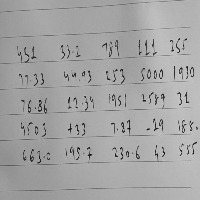 451 33.2 789 111 255
77.33 44.93 253 5000 1930
76.86 12.34 1951 2589 31
4503 +33 7.87 -29
663.0 195.7 230.6 43 555